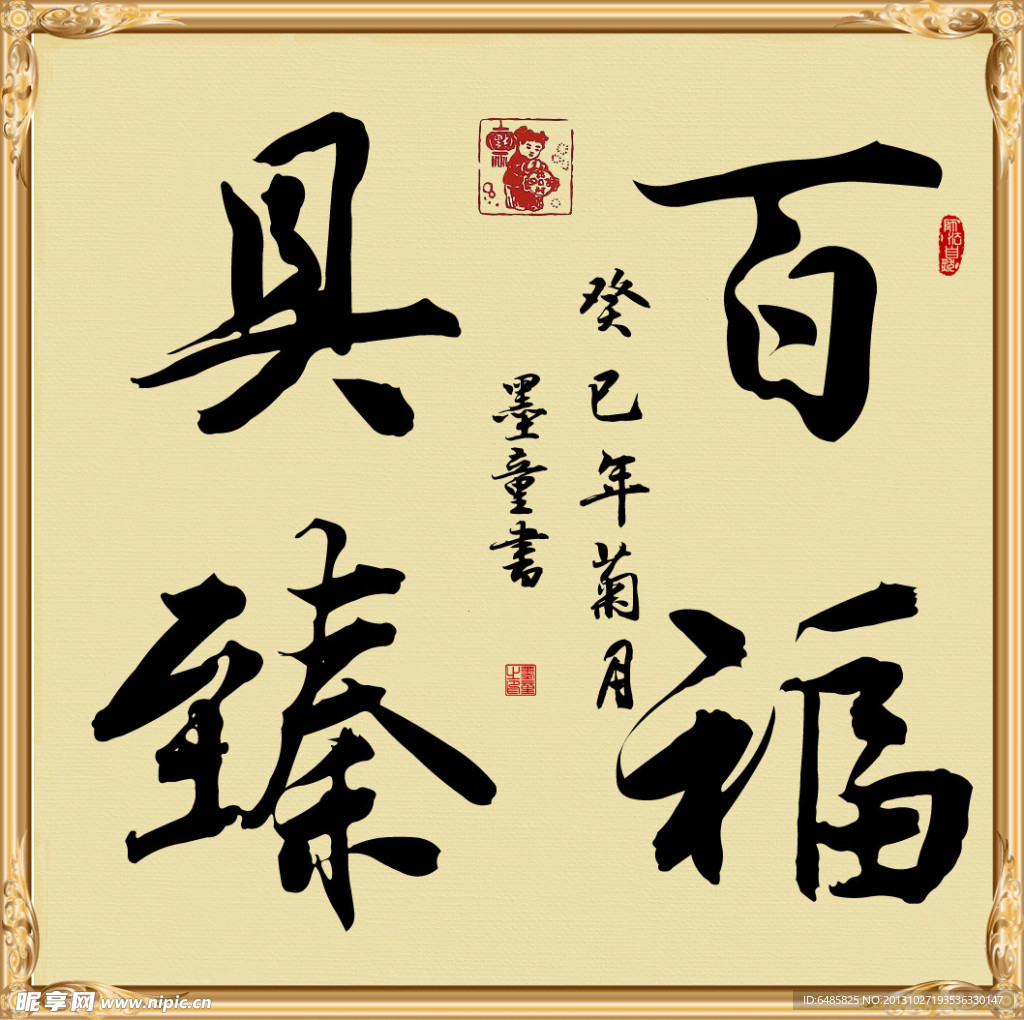 百福
具臻
癸巳年菊月
墨童书
师法自然
墨童之印
昵享网 www.nipic.cn
ID:6485825 NO.20131027193536330147